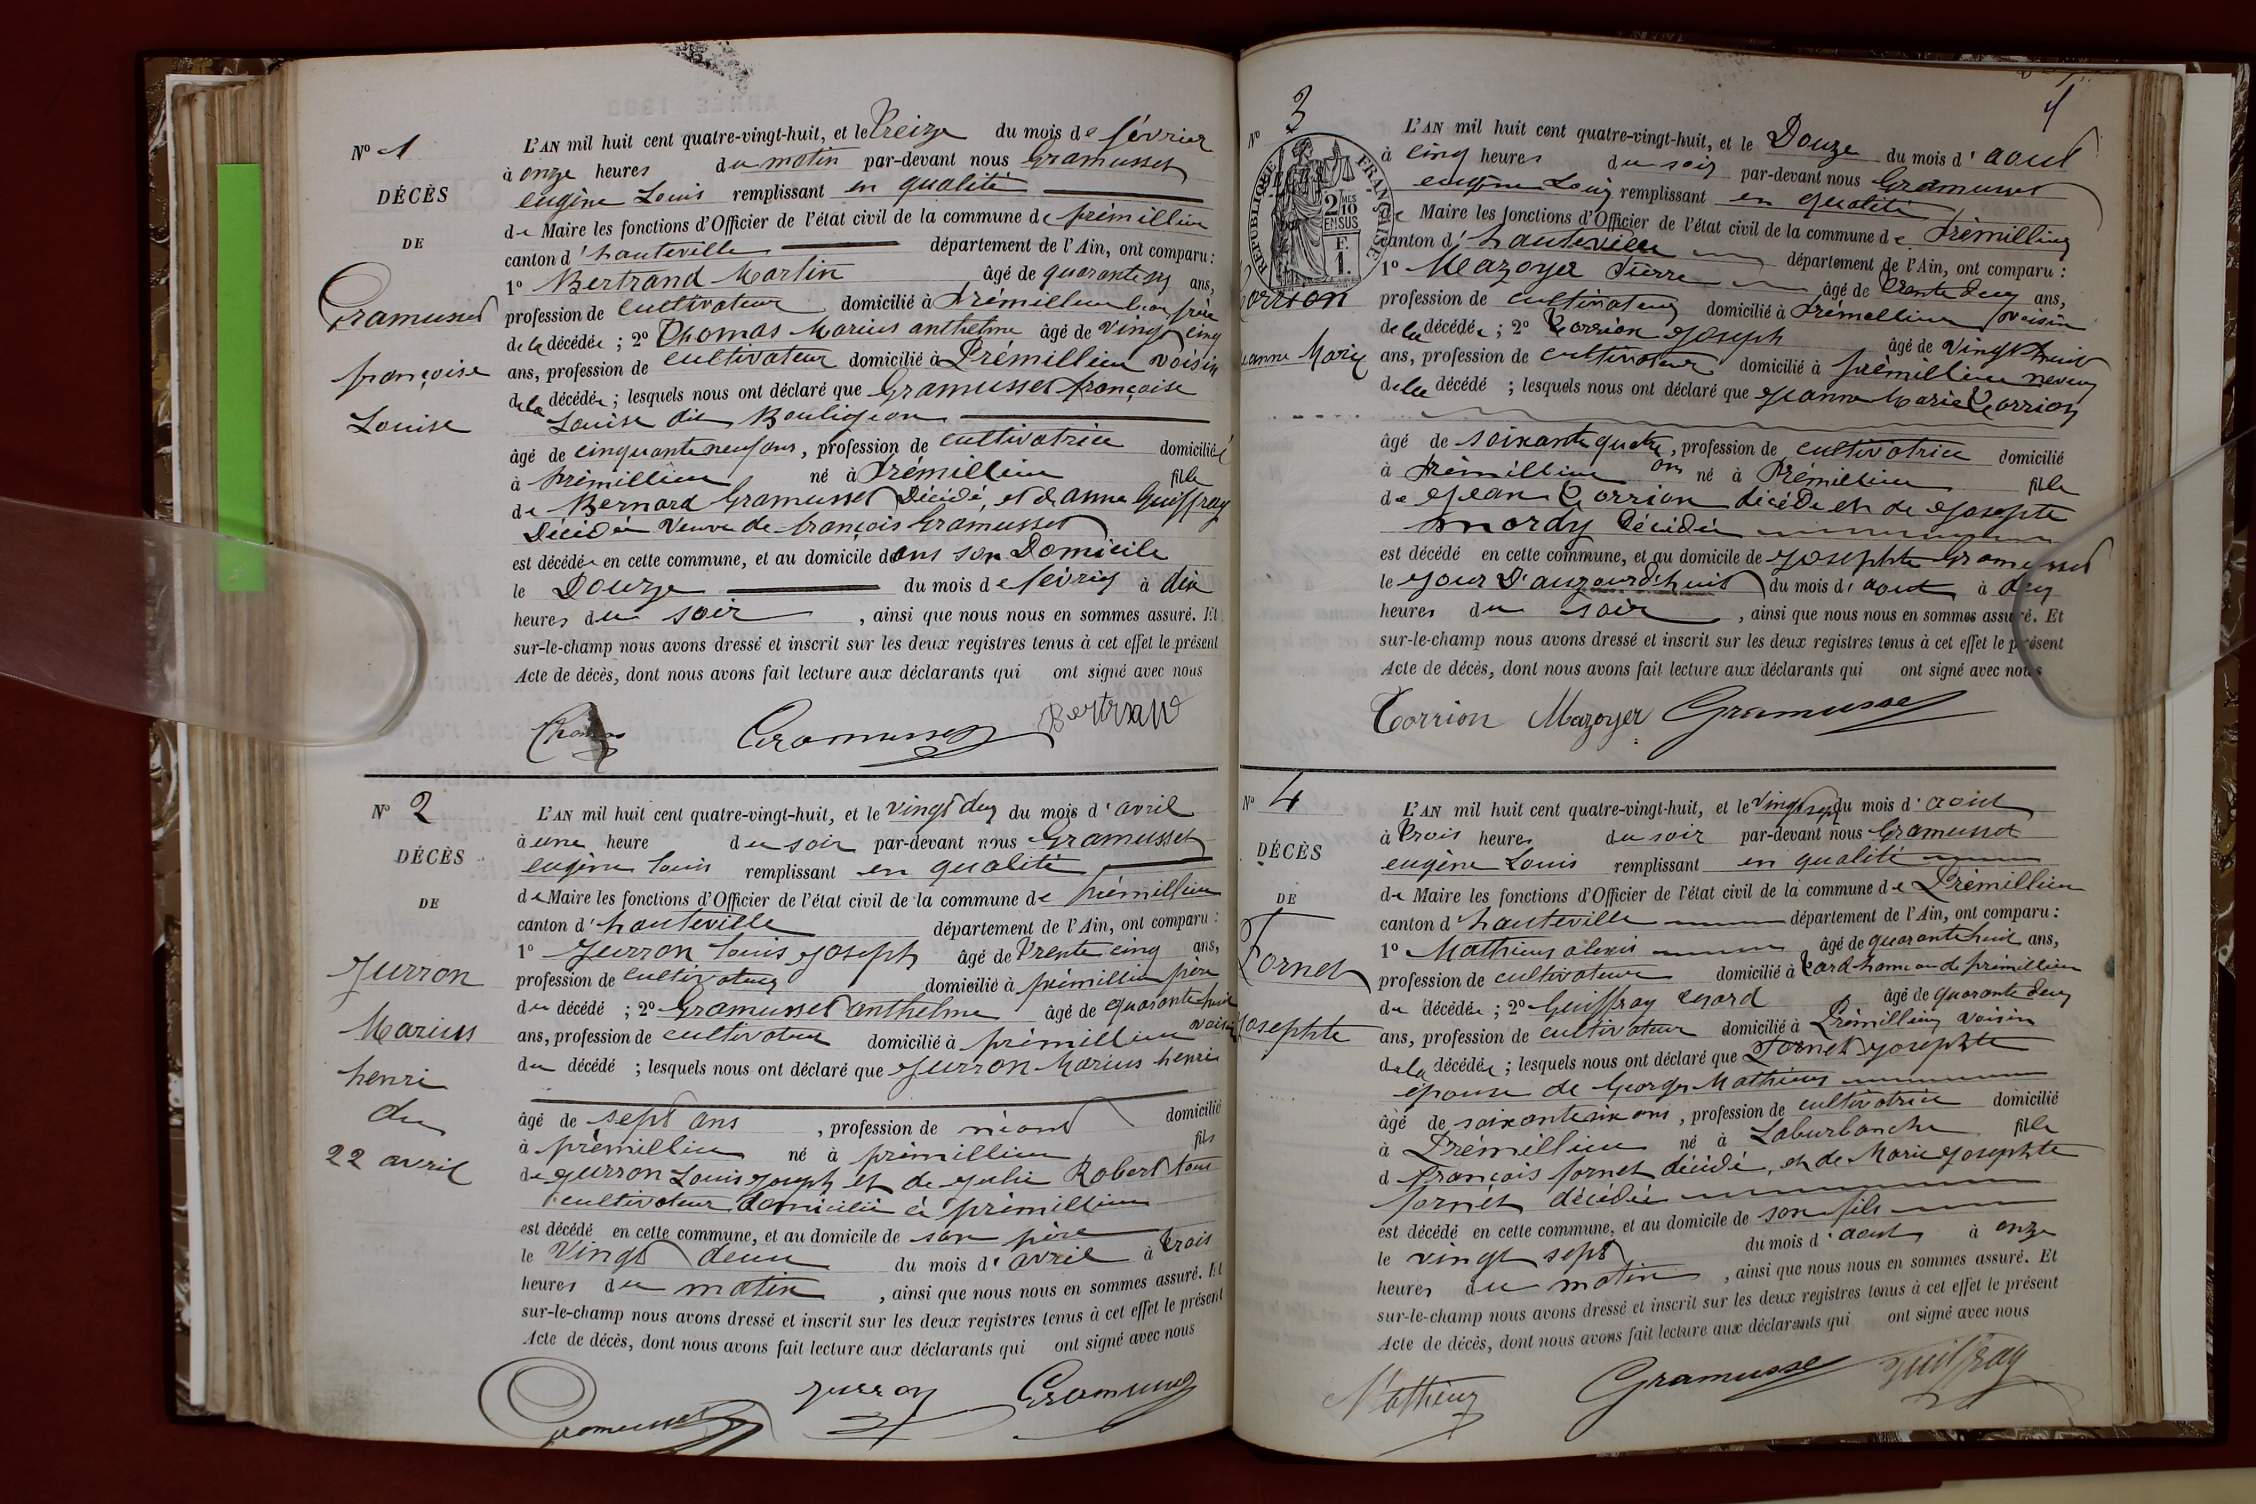 Nº 1
DÉCÈS
DE
Gramusset
françoise
Louise
L'AN mil huit cent quatre-vingt-huit, et le Treize du mois de février
à onze heures du matin par-devant nous Gramusset
eugène Louis remplissant en qualité
de Maire les fonctions d'Officier de l'état civil de la commune de prémillieu
canton d'hauteville département de l'Ain, ont comparu :
1º Bertrand Martin âgé de quarante six ans,
profession de cultivateur domicilié à Prémillieu beau frère
de la décédée ; 2º Thomas Marius anthelme âgé de vingt cinq
ans, profession de cultivateur domicilié à Prémillieu voisin
de la décédée ; lesquels nous ont déclaré que Gramusset françoise
Louise dit
âgé de cinquante neuf ans, profession de cultivatrice domiciliée
à Prémillieu né à Prémillieu fille
de Bernard Gramusset Décédé, et d'anne Guiffray
Décédée Veuve de françois Gramusset
est décédée en cette commune, et au domicile dans son Domicile
le Douze du mois de février à dix
heures du soir , ainsi que nous nous en sommes assuré. Et
sur-le-champ nous avons dressé et inscrit sur les deux registres tenus à cet effet le présent
Acte de décès, dont nous avons fait lecture aux déclarants qui ont signé avec nous
Thomas Gramusset Bertrand
Nº 2
DÉCÈS
DE
Jurron
Marius
henri
du
22 avril
L'AN mil huit cent quatre-vingt-huit, et le vingt deux du mois d'avril
à une heure du soir par-devant nous Gramusset
eugène louis remplissant en qualité
de Maire les fonctions d'Officier de l'état civil de la commune de prémillieu
canton d'hauteville département de l'Ain, ont comparu :
1º Jurron louis joseph âgé de Trente cinq ans,
profession de cultivateur domicilié à prémillieu père
du décédé ; 2º Gramusset anthelme âgé de quarante huit
ans, profession de cultivateur domicilié à prémillieu voisin
du décédé ; lesquels nous ont déclaré que Jurron Marius henri
âgé de sept ans , profession de néant domicilié
à prémillieu né à prémillieu fils
de Jurron Louis joseph et de julie Robert tous
cultivateur domicilié à prémillieu
est décédé en cette commune, et au domicile de son père
le Vingt deux du mois d'avril à trois
heures du matin , ainsi que nous nous en sommes assuré. Et
sur-le-champ nous avons dressé et inscrit sur les deux registres tenus à cet effet le présent
Acte de décès, dont nous avons fait lecture aux déclarants qui ont signé avec nous
Gramusset Jurron Gramusset
Nº 3
RÉPUBLIQUE FRANÇAISE
2 MES
10
EN SUS
F.
1.
Corrion
Jeanne Marie
L'AN mil huit cent quatre-vingt-huit, et le Douze du mois d'aout
à cinq heures du soir par-devant nous Gramusset
eugène Louis remplissant en qualité
de Maire les fonctions d'Officier de l'état civil de la commune de Prémillieu
canton d'hauteville département de l'Ain, ont comparu :
1º Mazoyer Pierre âgé de trente deux ans,
profession de cultivateur domicilié à Prémillieu voisin
de la décédée ; 2º Corrion Joseph âgé de vingt huit
ans, profession de cultivateur domicilié à prémillieu neveux
de la décédé ; lesquels nous ont déclaré que Jeanne Marie Corrion
âgé de soixante quatre ans, profession de cultivatrice domicilié
à Prémillieu né à Prémillieu fille
de Jean Corrion décédé et de Josephte
décédée
est décédé en cette commune, et au domicile de Josephte Gramusset
le jour D'aujourd'huit du mois d'aout à deux
heures du soir , ainsi que nous nous en sommes assuré. Et
sur-le-champ nous avons dressé et inscrit sur les deux registres tenus à cet effet le présent
Acte de décès, dont nous avons fait lecture aux déclarants qui ont signé avec nous
Corrion Mazoyer Gramusset
Nº 4
DÉCÈS
DE
Fornet
Josephte
L'AN mil huit cent quatre-vingt-huit, et le vingt sept du mois d'aout
à trois heures du soir par-devant nous Gramusset
eugène Louis remplissant en qualité
de Maire les fonctions d'Officier de l'état civil de la commune de Prémillieu
canton d'hauteville département de l'Ain, ont comparu :
1º Mathieux alexis âgé de quarante huit ans,
profession de cultivateur domicilié à hameau de prémillieu
du décédée ; 2º Guiffray âgé de quarante deux
ans, profession de cultivateur domicilié à Prémillieu voisin
de la décédée ; lesquels nous ont déclaré que Fornet Josephte
épouse de Georges Mathieux
âgé de soixante six ans, profession de cultivatrice domicilié
à Prémillieu né à Laburbanche fille
d François fornet décédé, et de Marie Josephte
fornet décédée
est décédé en cette commune, et au domicile de son fils
le vingt sept du mois d'aout à onze
heures du matin , ainsi que nous nous en sommes assuré. Et
sur-le-champ nous avons dressé et inscrit sur les deux registres tenus à cet effet le présent
Acte de décès, dont nous avons fait lecture aux déclarants qui ont signé avec nous
Mathieux Gramusset Guiffray